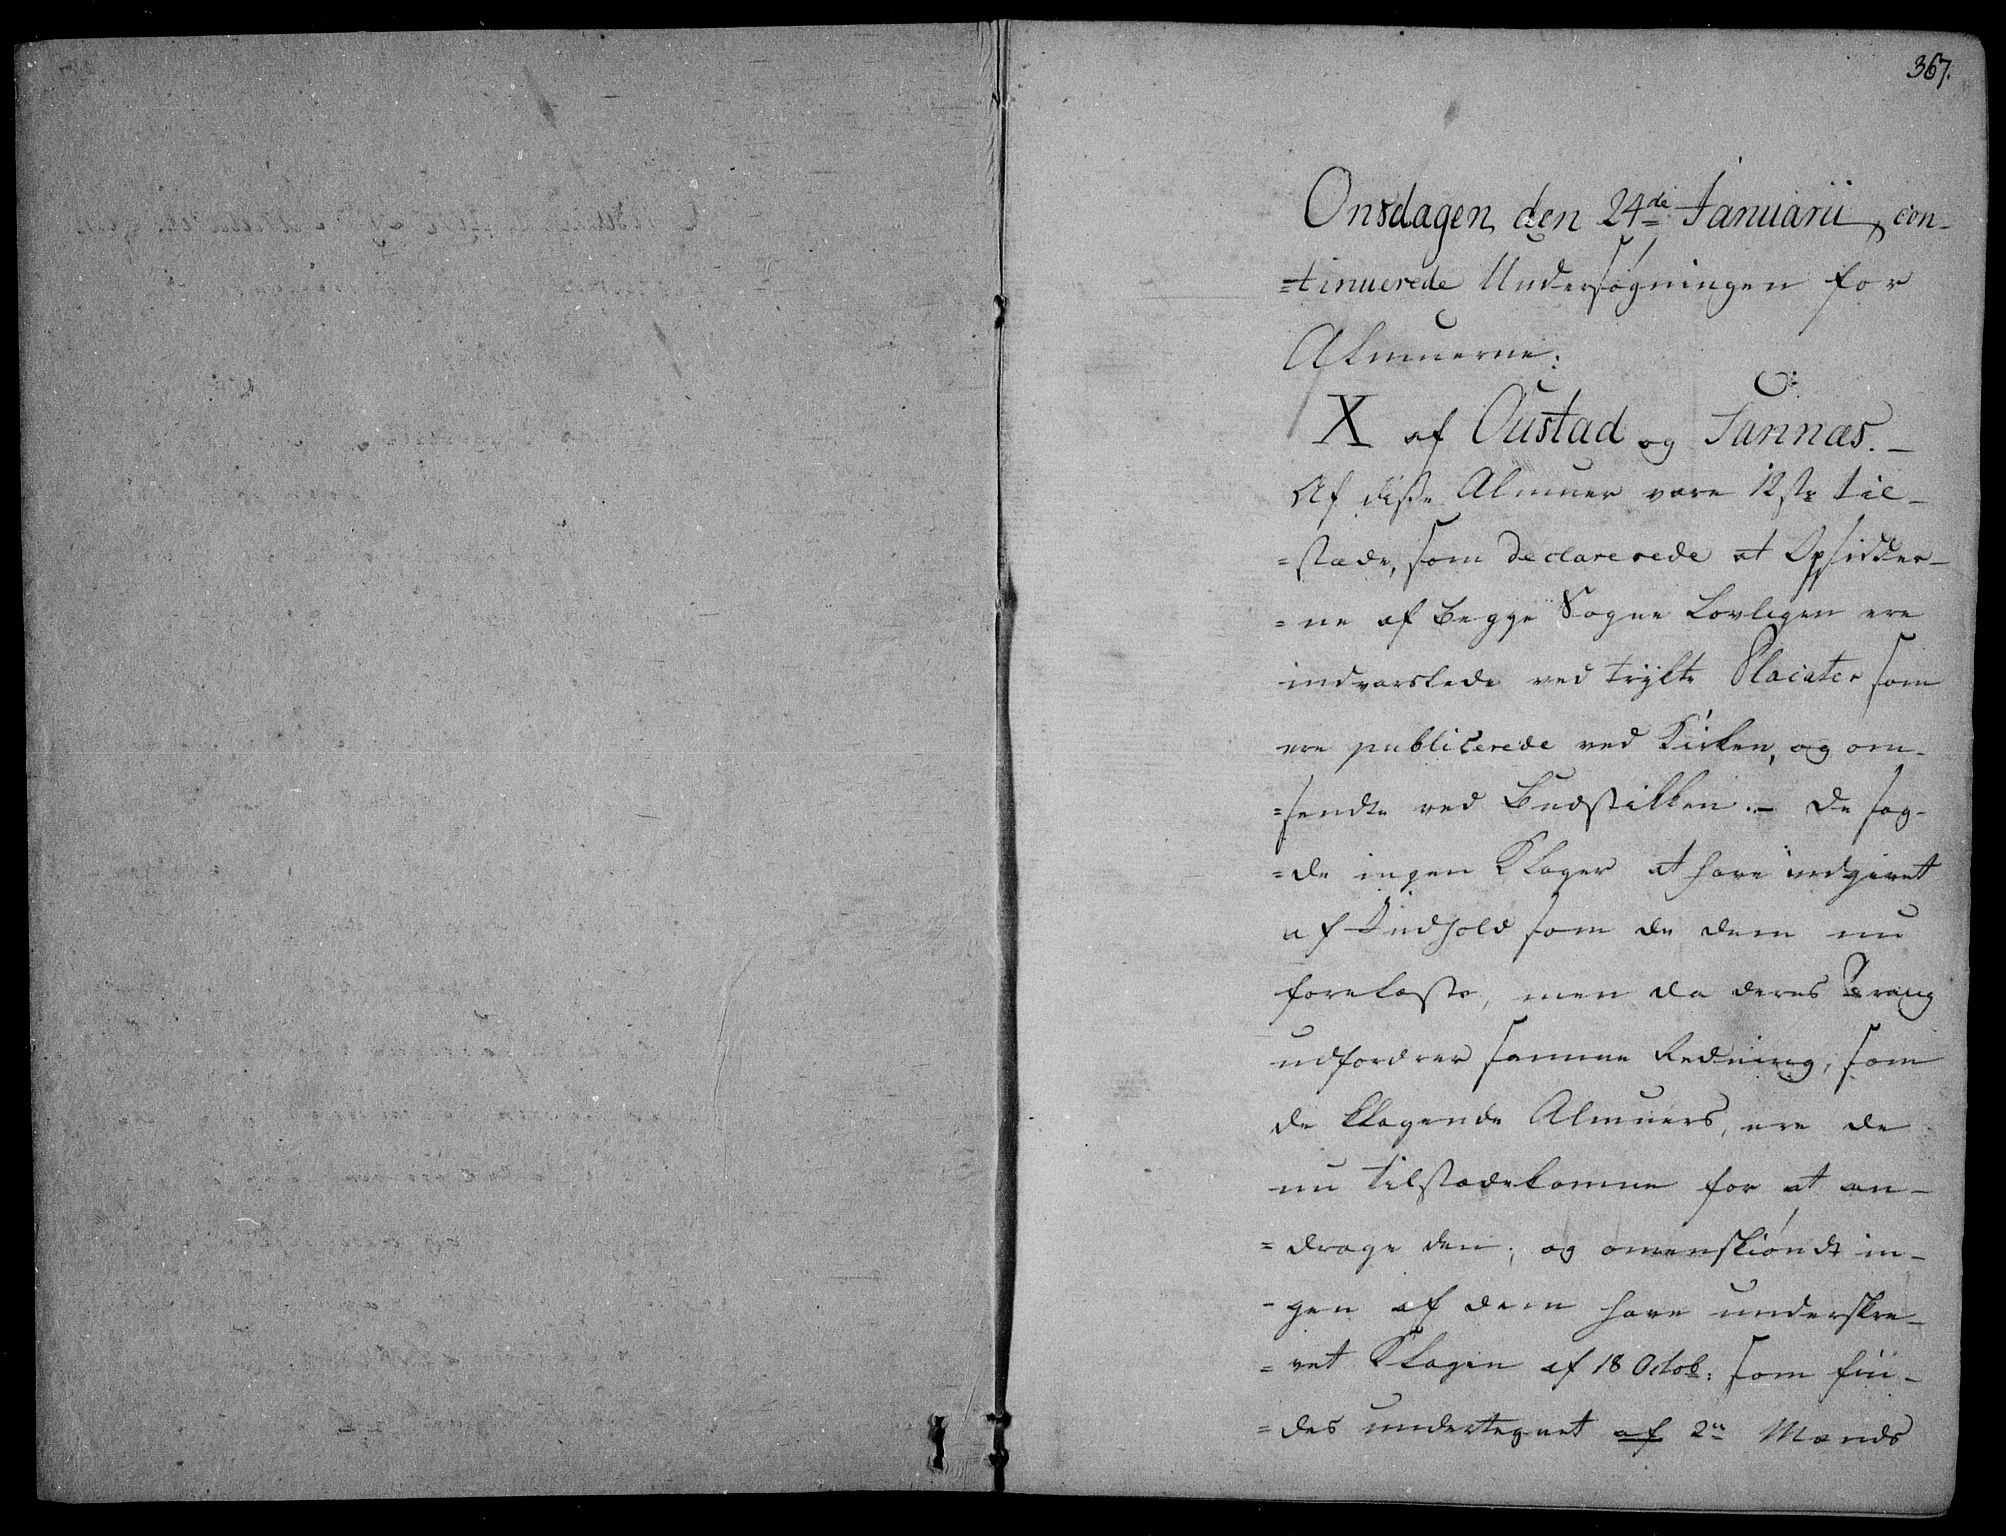 367.
Onsdagen den 24de Januarii, con-
=tinuerede Undersøgningen for
Almuerne.
X af Oustad og Tannæs.-
Af disse Almuer vare 12ste til-
=stæde, som declarerede at Opsidder-
=ne af Begge Sogne Lovligen ere
indvarslede ved trykte Placater som
ere publicerede ved Kirken, og om-
=sendte ved Budstikken.- De sag-
=de ingen Klager at have indgivet
af Indhold som de dem nu
forelæste, men da deres Trang
udfordrer samme Redning, som
de klagende Almuers, ere de
nu tilstædekomne for at an-
=drage den; og omenskiøndt in-
-gen af dem have underskre-
=vet Klagen af 18 Octob: som fin-
=des undertegnet af 2n Mænds